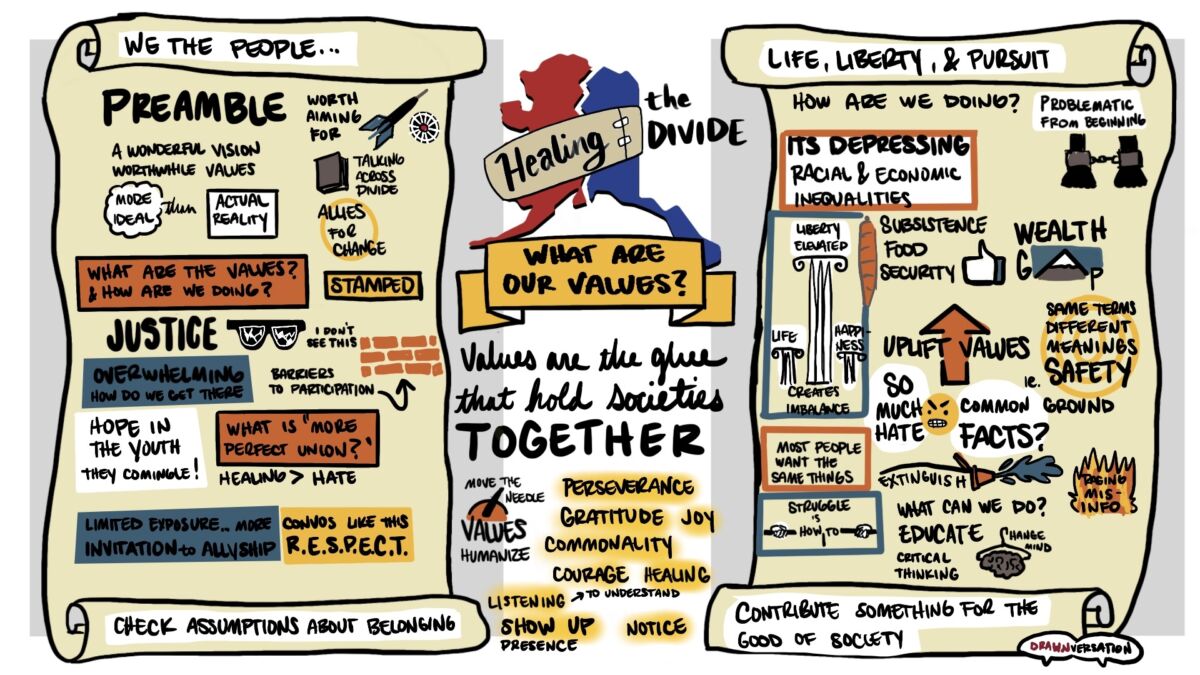 WE THE PEOPLE...
PREAMBLE
WORTH
AIMING
FOR
A WONDERFUL VISION
WORTHWHILE VALUES
TALKING
ACROSS
DIVIDE
MORE
IDEAL
then
ACTUAL
REALITY
ALLIES
FOR
CHANGE
WHAT ARE THE VALUES?
& HOW ARE WE DOING?
STAMPED
JUSTICE
I DON'T
SEE THIS
OVERWHELMING
HOW DO WE GET THERE
BARRIERS
TO PARTICIPATION
HOPE IN
THE YOUTH
THEY COMINGLE!
WHAT IS "MORE
PERFECT UNION?"
HEALING > HATE
LIMITED EXPOSURE... MORE
INVITATION to ALLYSHIP
CONVOS LIKE THIS
R.E.S.P.E.C.T.
CHECK ASSUMPTIONS ABOUT BELONGING
Healing
the
DIVIDE
WHAT ARE
OUR VALUES?
Values are the glue
that hold societies
TOGETHER
MOVE THE
NEEDLE
VALUES
HUMANIZE
PERSEVERANCE
GRATITUDE JOY
COMMONALITY
COURAGE HEALING
LISTENING → TO UNDERSTAND
SHOW UP NOTICE
PRESENCE
LIFE, LIBERTY, & PURSUIT
HOW ARE WE DOING?
PROBLEMATIC
FROM BEGINNING
ITS DEPRESSING
RACIAL & ECONOMIC
INEQUALITIES
LIBERTY
ELEVATED
LIFE
HAPPI-
NESS
CREATES
IMBALANCE
SUBSISTENCE
FOOD
SECURITY
WEALTH
GAP
UPLIFT VALUES
SAME TERMS
DIFFERENT
MEANINGS
ie. SAFETY
SO
MUCH
HATE
COMMON GROUND
FACTS?
MOST PEOPLE
WANT THE
SAME THINGS
EXTINGUISH
RAGING
MIS-
INFO
STRUGGLE
IS
HOW TO
WHAT CAN WE DO?
EDUCATE
CHANGE
MIND
CRITICAL
THINKING
CONTRIBUTE SOMETHING FOR THE
GOOD OF SOCIETY
DRAWNVERSATION